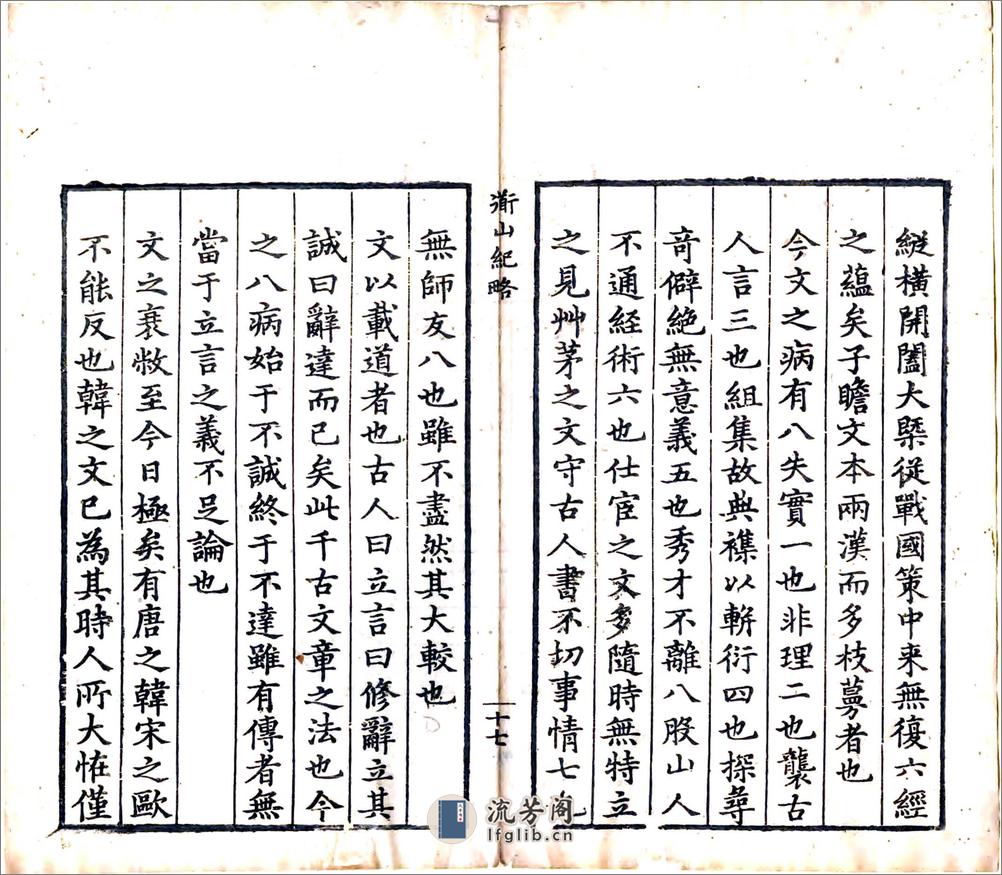 縱橫開闔大槩從戰國策中来無復六經
之蘊矣子瞻文本兩漢而多枝蔓者也
今文之病有八失實一也非理二也襲古
人言三也組集故典襍以騈衍四也探尋
竒僻絶無意義五也秀才不離八股山人
不通経術六也仕宦之文多隨時無特立
之見艸茅之文守古人書不切事情七也
衜山紀略
十七
無師友八也雖不盡然其大較也
文以載道者也古人曰立言曰修辭立其
誠曰辭達而已矣此千古文章之法也今
之八病始于不誠終于不達雖有傳者無
當于立言之義不足論也
文之衰敝至今日極矣有唐之韓宋之歐
不能反也韓之文已為其時人所大恠僅
流芳阁
lfglib.cn